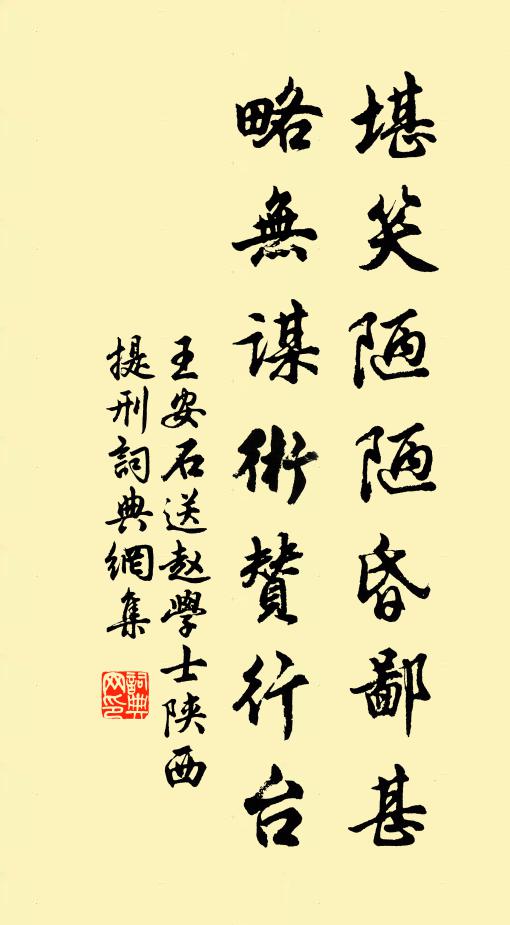 堪笑陋陋昏鄙甚
略無謀術贊行台
王安石送赵學士陝西
提刑詞典網集
詞典
网印